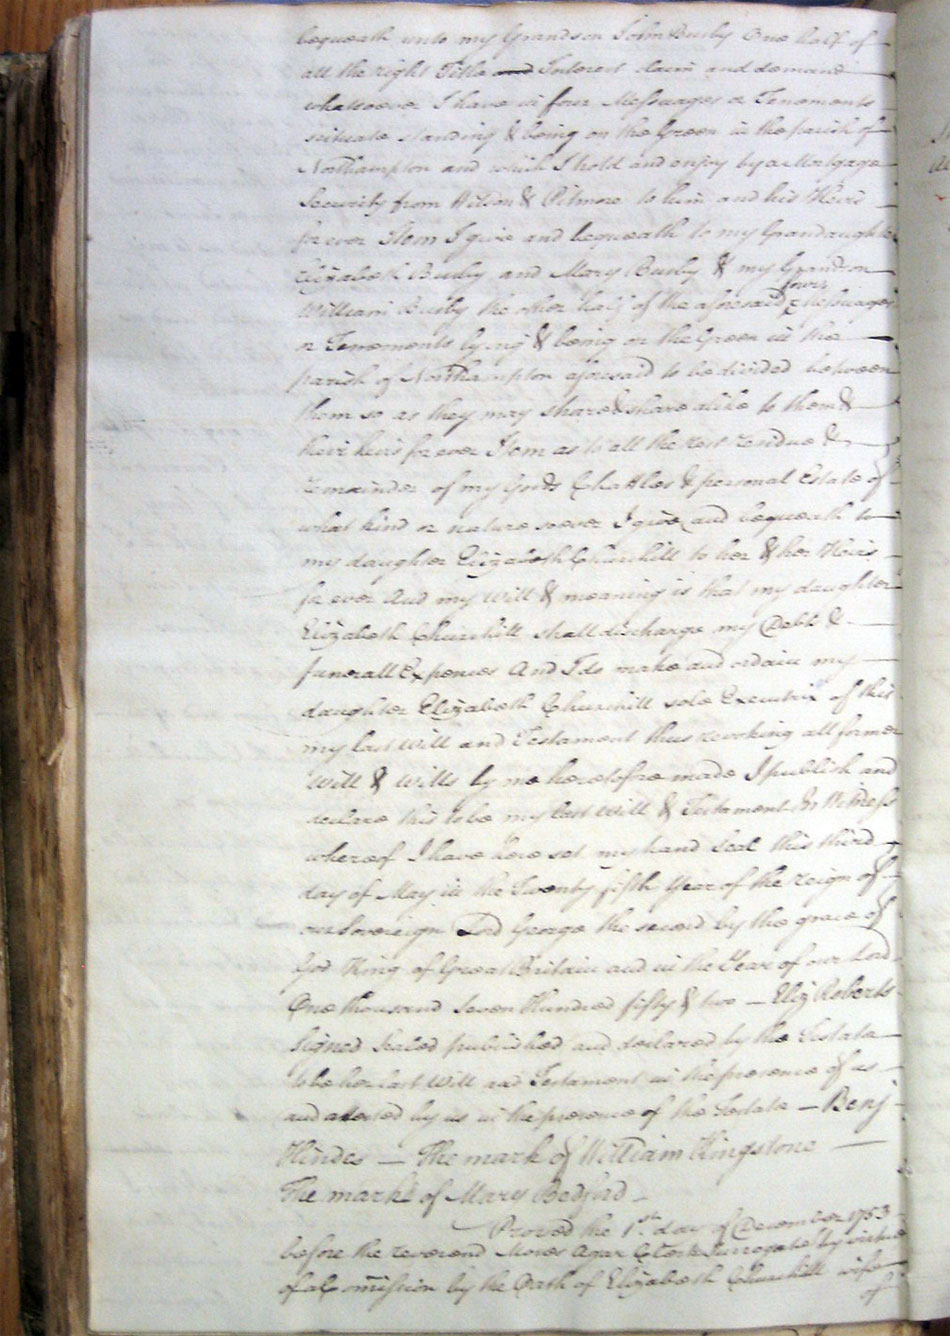 bequeath unto my Grandson John Busby One half of
all the right Title and Interest claim and demand
whatsoever I have in four Messuages or Tenements
scituate standing & being on the Green in the parish of
Northampton and which I hold and enjoy by a Mortgage
Security from & to him and his Heirs
for ever Item I give and bequeath to my Grandaughter
Elizabeth Busby and Mary Busby & my Grandson
William Busby the other half of the aforesaid four Messuages
or Tenements lying & being on the Green in the
parish of Northampton aforesaid to be divided between
them so as they may share & share alike to them &
their heirs for ever Item as to all the rest residue &
remainder of my Goods Chattles & personal Estate of
what kind or nature soever I give and bequeath to
my daughter Elizabeth Churchill to her & her Heirs
for ever And my will & meaning is that my daughter
Elizabeth Churchill shall discharge my Debts &
funerall Expences And I do make and ordain my
daughter Elizabeth Churchill sole Executrix of this
my last Will and Testament thus revoking all former
Will & Wills by me heretofore made I publish and
declare this to be my last Will & Testament In Witness
whereof I have here set my hand Seal this third
day of May in the Twenty fifth Year of the reign of
our Sovereign Lord George the second by the grace of
God King of Great Britain and in the Year of our Lord
One thousand Seven Hundred fifty & two — Eliz Roberts
Signed Sealed published and declared by the Testate
to be her last Will and Testament in the presence of us —
and attested by us in the presence of the Testate — Benj
Hindes — The mark of William Kingstone —
The mark of Mary Bedford —
Proved the 1st day of December 1753
before the reverend Moses Agar Clerk Surrogate by virtue
of a Commission by the Oath of Elizabeth Churchill wife
of